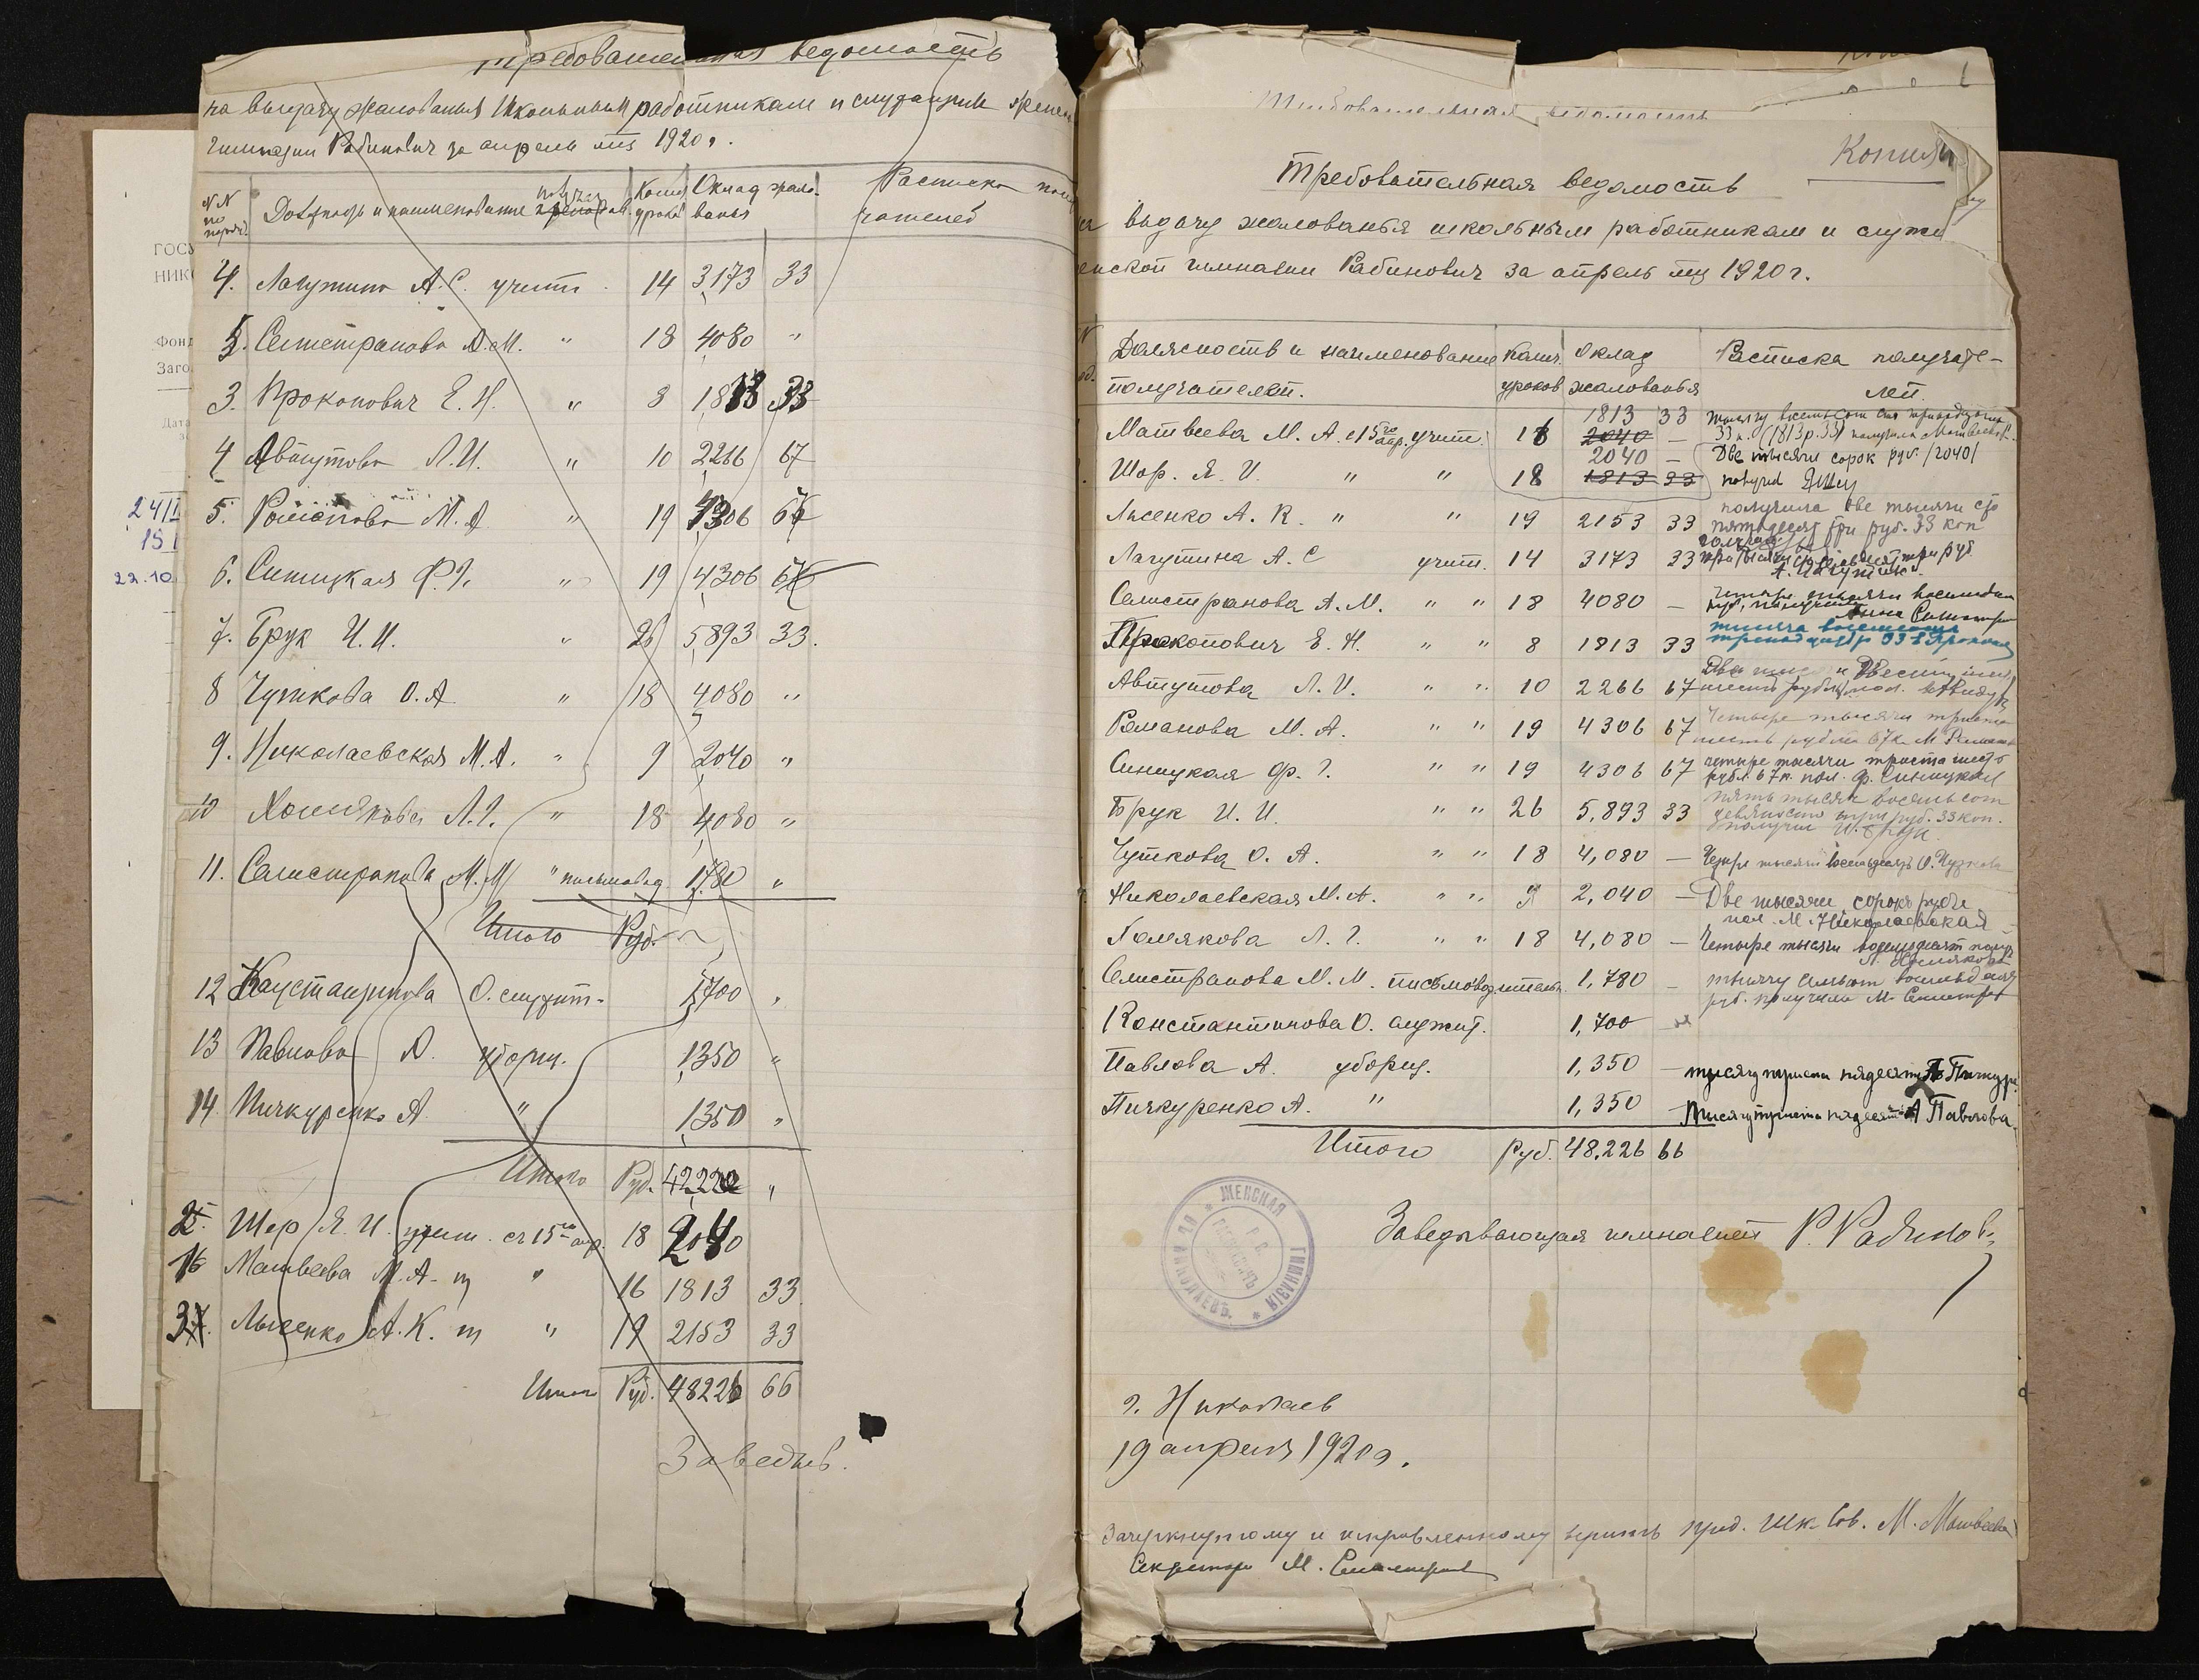 Требовательная ведомость
на выдачу жалованья школьным работникам и служащим женск
гимназии Рабинович за апрель мц 1920 г.
NN по поряд. Должность и наименование получат Колич уроков Оклад жалованья Расписка получателей
4. Лагутина А. С. учит. 14 3173 33
5. Селистранова А. М. " 18 4080 "
3. Прокопович Е. Н. " 8 1813 33
4 Автутова Л. И. " 10 2266 67
5. Романова М. А " 19 4306 67
6. Синицкая Ф. Г. " 19 4306 67
7. Брук И. И. " 26 5,893 33.
8 Чуткова О. А " 18 4080 "
9. Николаевская М. А. " 9 2040 "
10 Хомякова Л. Г. " 18 4080 "
11. Селистранова М. М. " письмовод. 1780 "
Итого Руб.
12 Константинова О. служит. 1700 "
13 Павлова А. уборщ. 1350 "
14. Пичкуренко А. " 1350 "
Итого Руб. 42220 "
Шер Я. И. учит. с 15го апр. 18 2040
16 Матвеева М. А. " 16 1813 33
Лысенко А. К. " 19 2153 33
Итого Руб. 48226 66
Заведыв.
ГОСУ
НИКО
Фонд
Заго
Дата
24/I
15 I
22.10
Требовательная ведомость
Копия
Требовательная ведомость
на выдачу жалованья школьным работникам и служ
енской гимназии Рабинович за апрель мц 1920 г.
Должность и наименование получателей. Колич. уроков Оклад жалованья Расписка получателей.
Матвеева М. А. с 15го апр. учит. 16 1813 33 2040 — тысячу восемьсот тринадцать 33 к. (1813 р. 33) получила Матвеева
Шор. Я. И. " " 18 2040 — 1813 33 Две тысячи сорок руб. /2040/ получил ЯШер
Лысенко А. К. " " 19 2153 33 получила две тысячи сто пятьдесят три руб. 33 коп
Лагутина А. С учит. 14 3173 33 три руб. А. Лагутина
Селистранова А. М. " " 18 4080 — четыре тысячи восемьдесят руб. получила Анна Селистран
Прокопович Е. Н. " " 8 1813 33 тысяча восемьсот тринадцать р 33 Е Прокоп
Автутова Л. И. " " 10 2266 67 Две тысячи двести шесть рубл. пол. ЛАвтут
Романова М. А. " " 19 4306 67 Четыре тысячи триста шесть рублей 67 к. М Романова
Синицкая Ф. Г. " " 19 4306 67 четыре тысячи триста шесть рубл. 67 к. пол. Ф. Синицкая
Брук И. И. " " 26 5,893 33 пять тысяч восемьсот девяносто три руб. 33 коп. получил И. Брук
Чуткова О. А. " " 18 4,080 — Четыре тысячи восемьдесят О. Чуткова
Николаевская М. А. " " 9 2,040 — Две тысячи сорок рубле пол. М. Николаевская
Хомякова Л. Г. " " 18 4,080 — Четыре тысячи восемьдесят получ Л. Хомякова
Селистранова М. М. письмоводитель. 1,780 — тысячу семьсот восемьдесят руб. получила М. Селистран
Константинова О. служит. 1,700 —
Павлова А. уборщ. 1,350 — тысячу триста пядесят А Пичкур
Пичкуренко А. " 1,350 — тисячу триста пядесят А Павлова.
Итого Руб. 48,226 66
ЖЕНСКАЯ ГИМНАЗІЯ * НИКОЛАЕВЪ. *
Заведывающая гимназией Р. Рабинович
г. Николаев
19 апреля 1920 г.
Зачеркнутому и исправленному верить пред. Шк. Сов. М. Матвеева
Секретарь М. Селистран